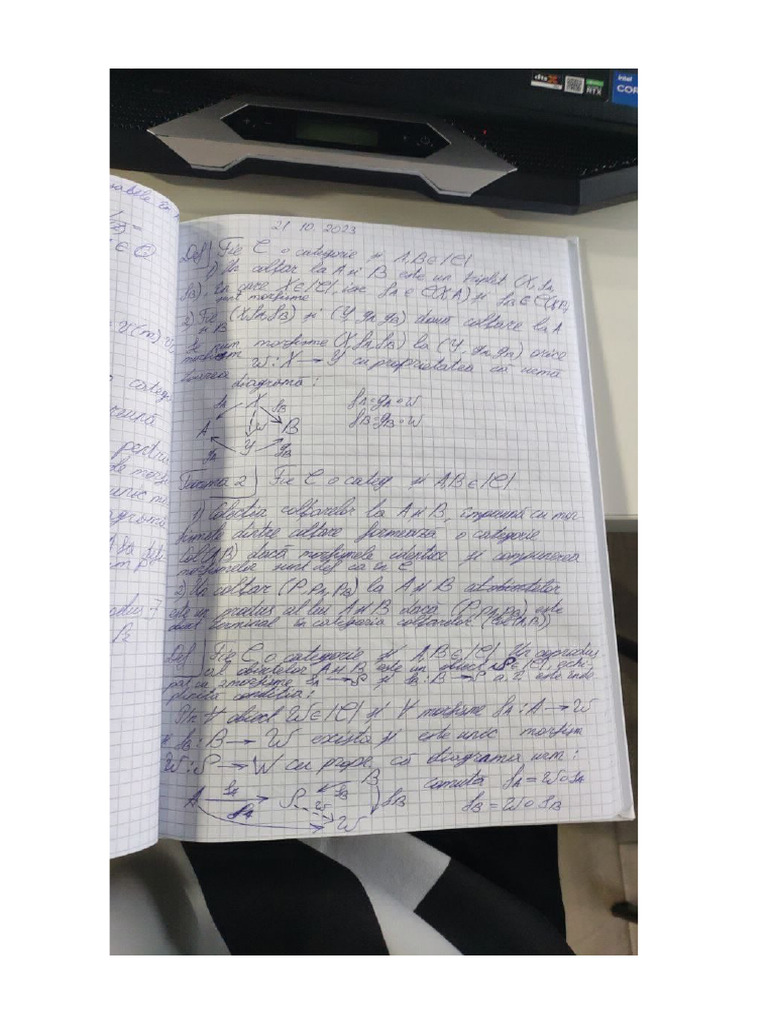 21 10. 2023
Def) Fie C o categorie și A,B∈|C|
1) Un colțar la A și B este un triplet (X, fA,
fB), în care X∈|C|, iar fA∈C(X,A) și fB∈C(X,B)
sunt morfisme
2) Fie (X,fA,fB) și (Y,gA,gB) două colțare la A
și B
Se num morfisme (X,fA,fB) la (Y,gA,gB) orice
morfism
W: X → Y cu proprietatea că urmă
toarea diagramă:
fA X fB
fA=gA∘W
A W B
fB=gB∘W
gA Y gB
Teorema 2) Fie C o categ și A,B∈|C|
1) Colecția colțarelor la A și B, împreună cu mor
fismele dintre colțare formează o categorie
Col(A,B) dacă morfismele identice și compunerea
morfismelor sunt def ca în C
2) Un colțar (P,pA,pB) la A și B
este un produs al lui A și B dacă (P,pA,pB) este
obiect terminal în categoria colțarelor Col(A,B)
Def Fie C o categorie și A,B∈|C| Un coprodus
al obiectelor A și B este un obiect S∈|C|, echi
pat cu 2 morfisme sA: A → S și sB: B → S a.î. este înde
plinită condiția:
Ptr ∀ obiect W∈|C| și ∀ morfisme fA: A → W
și fB: B → W există și este unic morfism
W: S → W cu propr. că diagrama urm:
A sA S sB B fB comută fA=W∘sA
fA W W fB=W∘sB